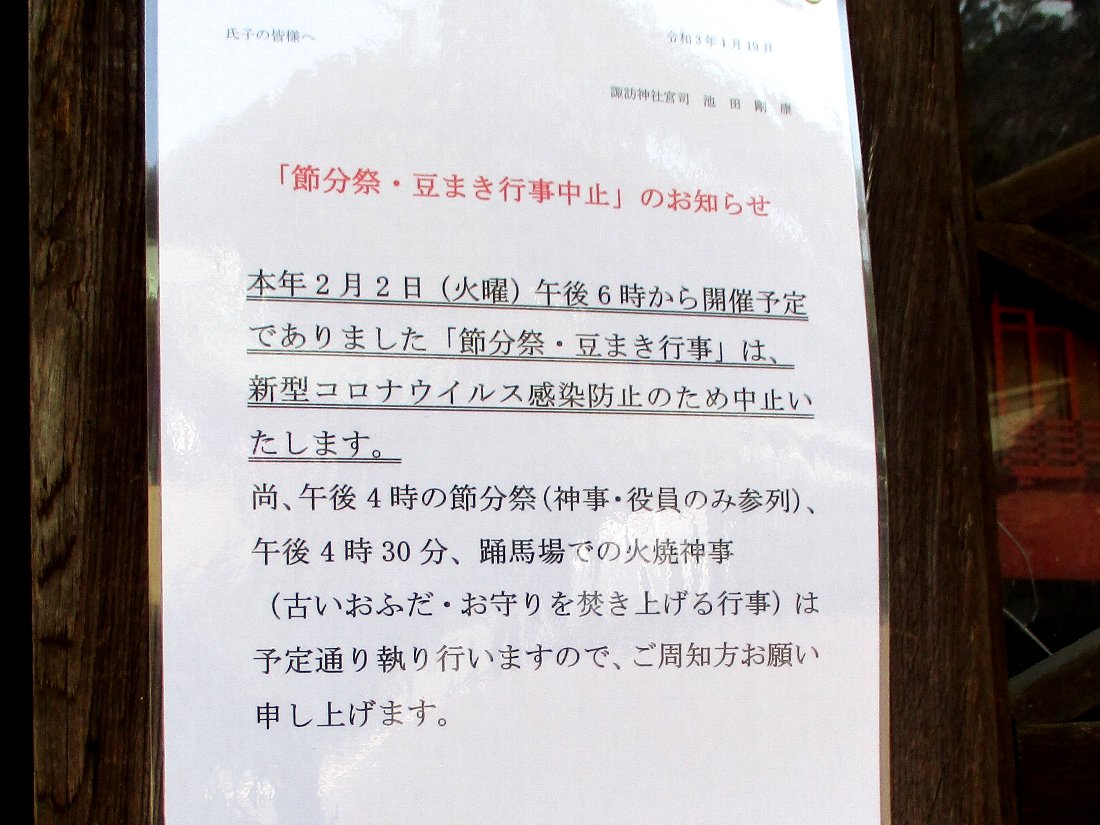 氏子の皆様へ
令和3年1月19日
諏訪神社宮司 池田剛康
「節分祭・豆まき行事中止」のお知らせ
本年2月2日(火曜)午後6時から開催予定
でありました「節分祭・豆まき行事」は、
新型コロナウイルス感染防止のため中止い
たします。
尚、午後4時の節分祭(神事・役員のみ参列)、
午後4時30分、踊馬場での火焼神事
(古いおふだ・お守りを焚き上げる行事)は
予定通り執り行いますので、ご周知方お願い
申し上げます。